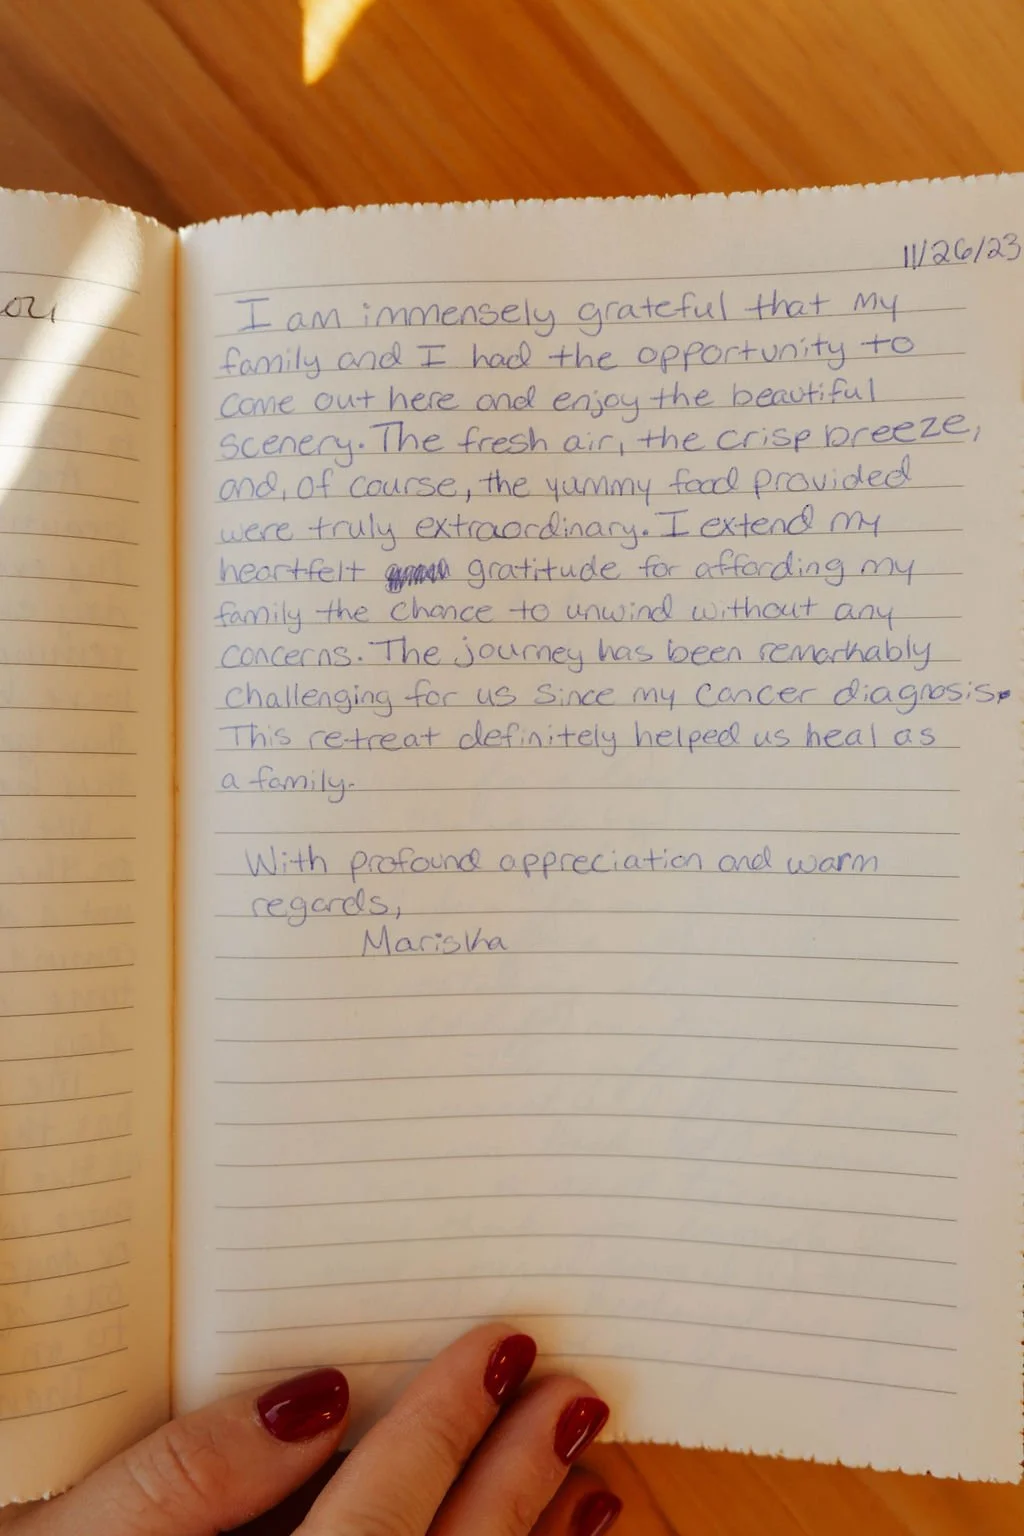 11/26/23
I am immensely grateful that my
family and I had the opportunity to
come out here and enjoy the beautiful
scenery. The fresh air, the crisp breeze,
and, of course, the yummy food provided
were truly extraordinary. I extend my
heartfelt gratitude for affording my
family the chance to unwind without any
concerns. The journey has been remarkably
challenging for us since my cancer diagnosis.
This retreat definitely helped us heal as
a family.
With profound appreciation and warm
regards,
Mariska